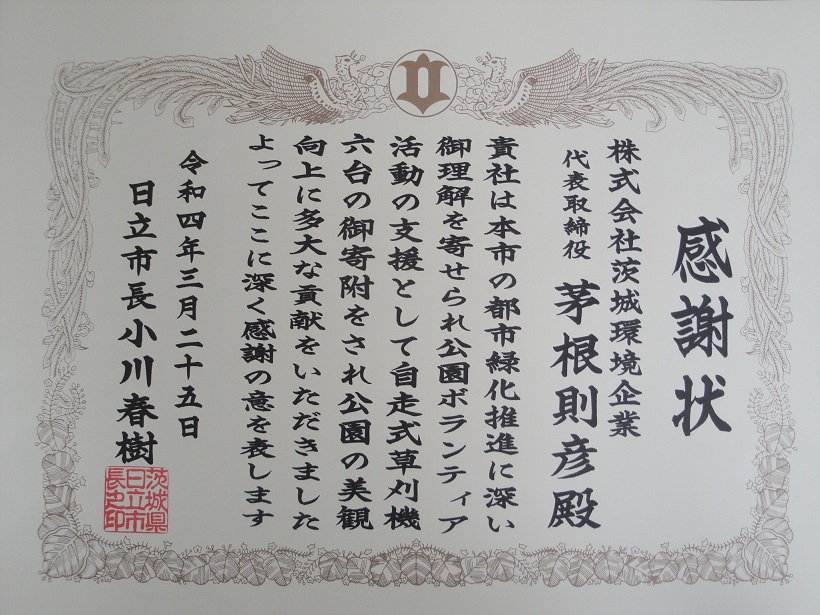 感謝状
株式会社茨城環境企業
代表取締役 茅根則彦殿
貴社は本市の都市緑化推進に深い
御理解を寄せられ公園ボランティア
活動の支援として自走式草刈機
六台の御寄附をされ公園の美観
向上に多大な貢献をいただきました
よってここに深く感謝の意を表します
令和四年三月二十五日
日立市長小川春樹
茨城県
日立市
長之印